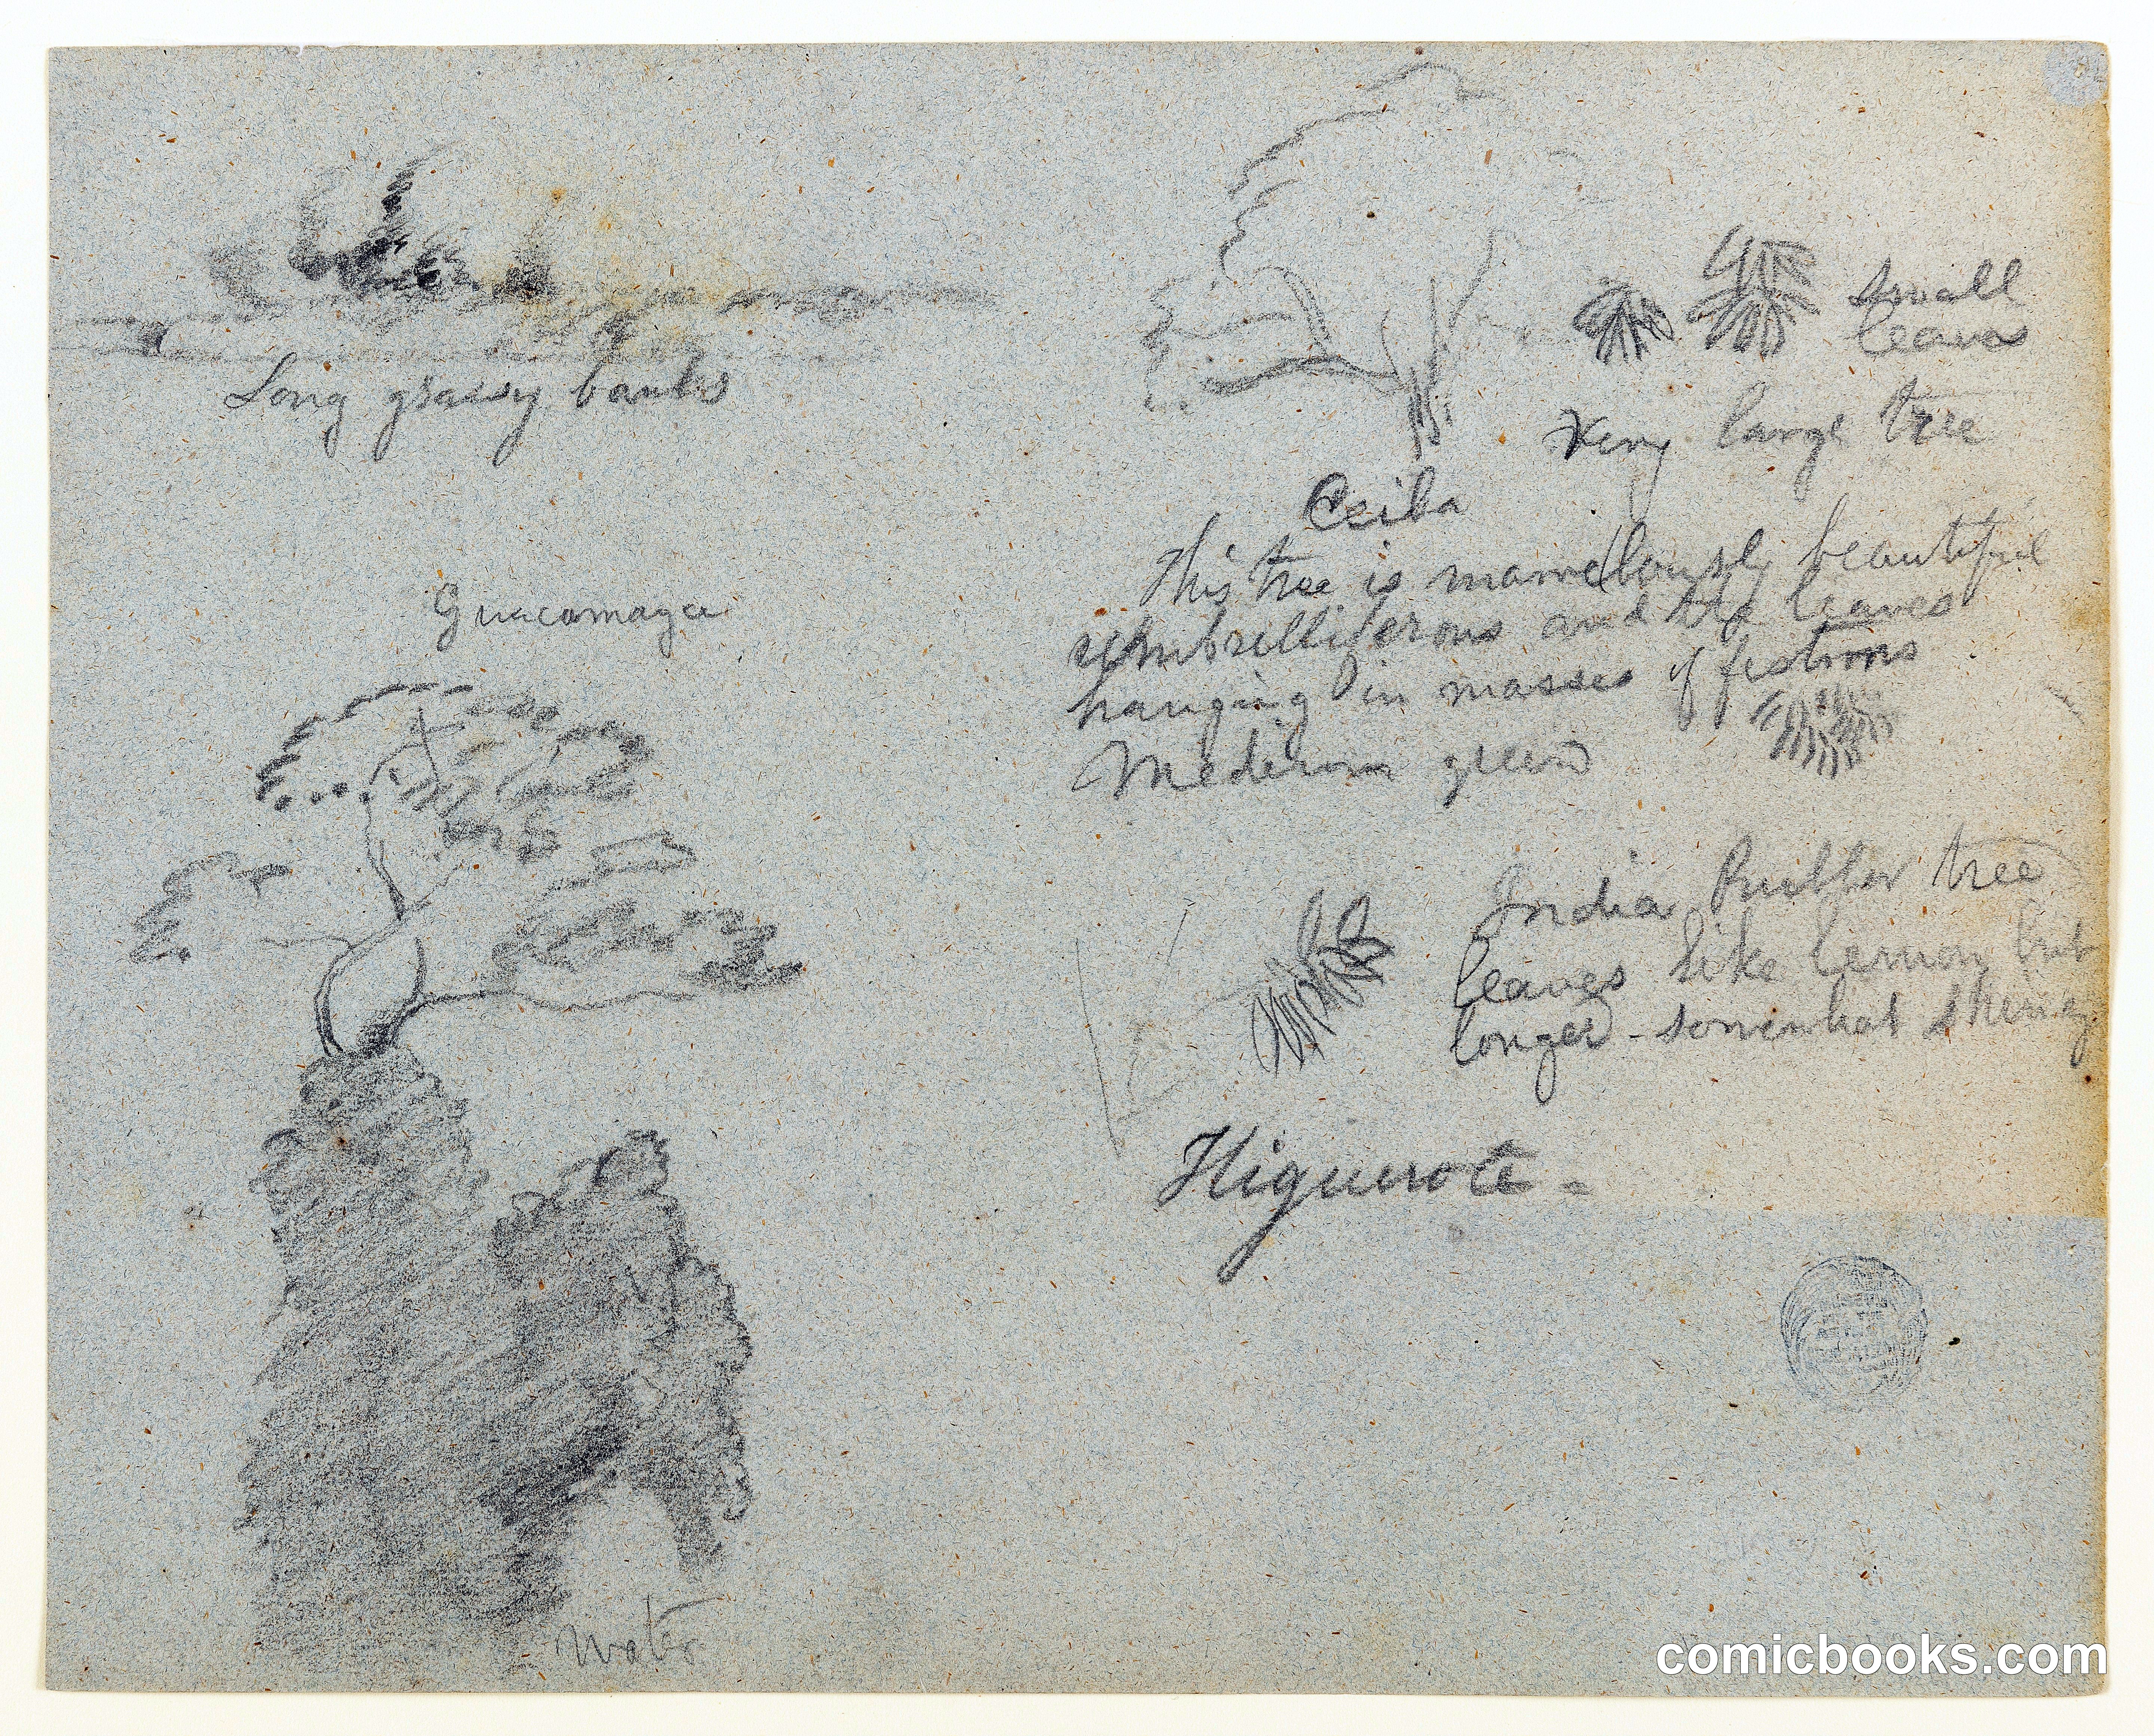 Long grassy banks
Guacamaya
water
Small
leaves
Very large tree
Ceiba
This tree is marvellously beautiful
umbrelliferous and the leaves
hanging in masses of festoons
Medium green
India Rubber tree
leaves like lemon but
longer - somewhat shiny
Higuerote =
comicbooks.com